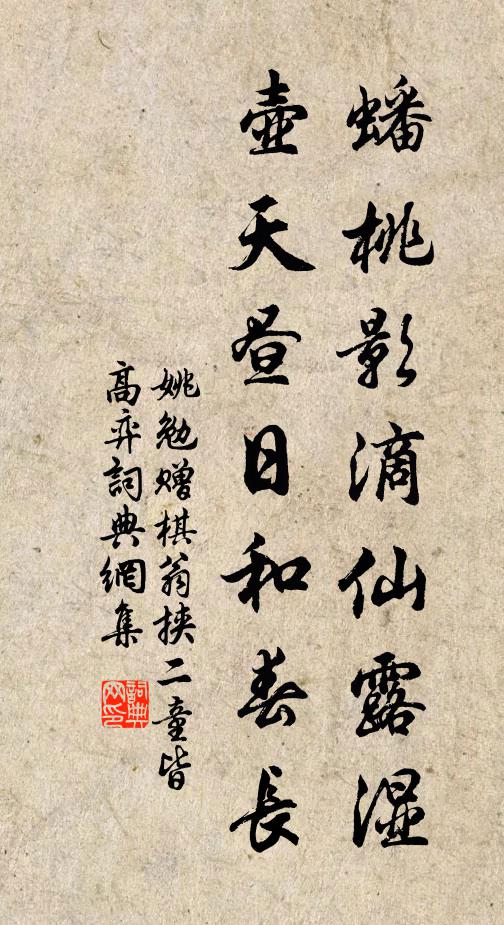 蟠桃影滴仙露湿
壶天昼日和春長
姚勉赠棋翁挾二童皆
高弈詞典網集
詞典网印